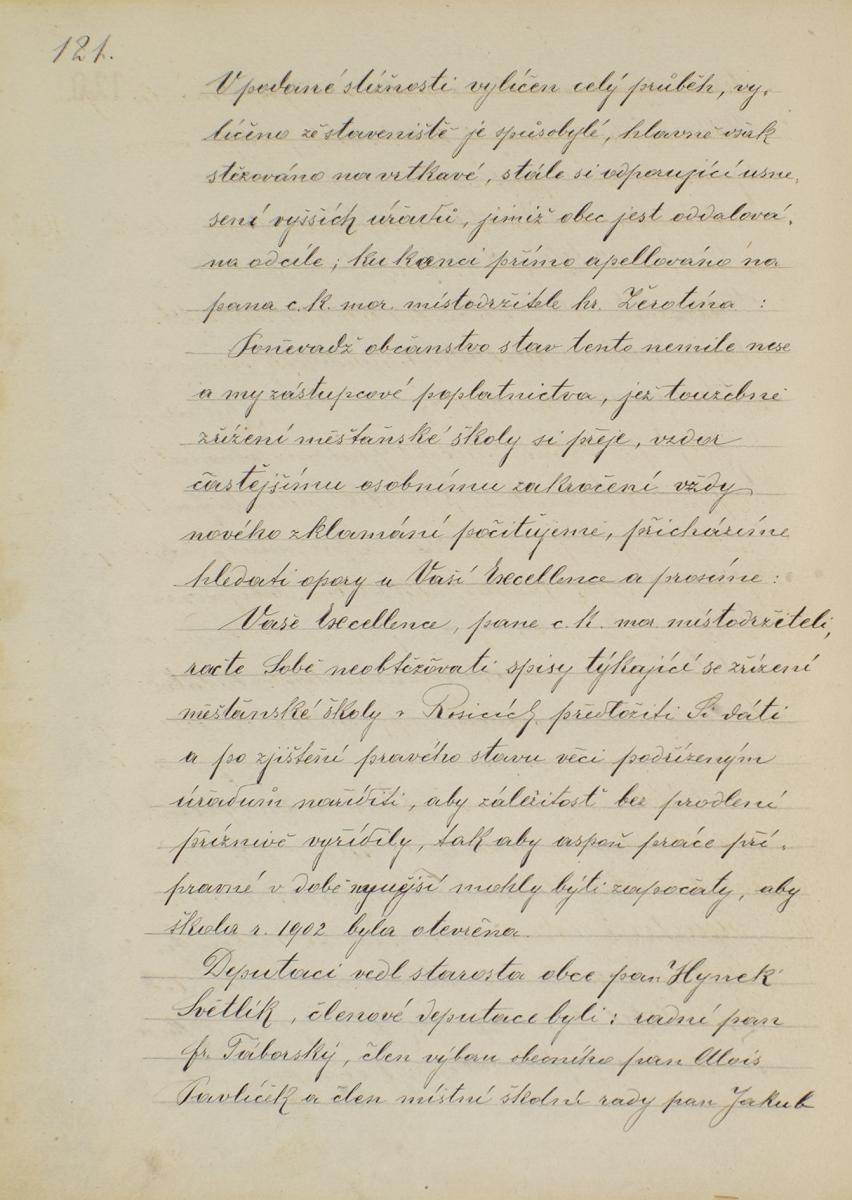 121.
V podané stížnosti vylíčen celý průběh, vy-
líčeno že staveniště je spůsobylé, hlavně však
stěžováno na vrtkavé, stále si odporující usne-
sení vyšších úřadů, jimiž obec jest oddalová-
na od cíle; ku konci přímo apellováno na
pana c. k. mor. místodržitele hr. Žerotína :
Poněvadž občanstvo stav tento nemile nese
a my zástupcové poplatnictva, jež toužebně
zřízení měšťanské školy si přeje, vzdor
častějšímu osobnímu zakročení vždy
nového zklamání pociťujeme, přicházíme
hledati opory u Vaší Excellence a prosíme :
Vaše Excellence, pane c. k. mor místodržiteli,
račte Sobě neobtěžovati spisy týkající se zřízení
měšťanské školy v Rosicích předložiti Si dáti
a po zjištění pravého stavu věci podřízeným
úřadům naříditi, aby záležitosť bez prodlení
příznivě vyřídily, tak aby aspoň práce pří-
pravné v době nynější mohly býti započaty, aby
škola r. 1902 byla otevřena.
Deputaci vedl starosta obce pan Hynek
Světlík, členové deputace byli : radní pan
fr. Táborský, člen výboru obecního pan Alois
Pavlíček a člen místní školní rady pan Jakub